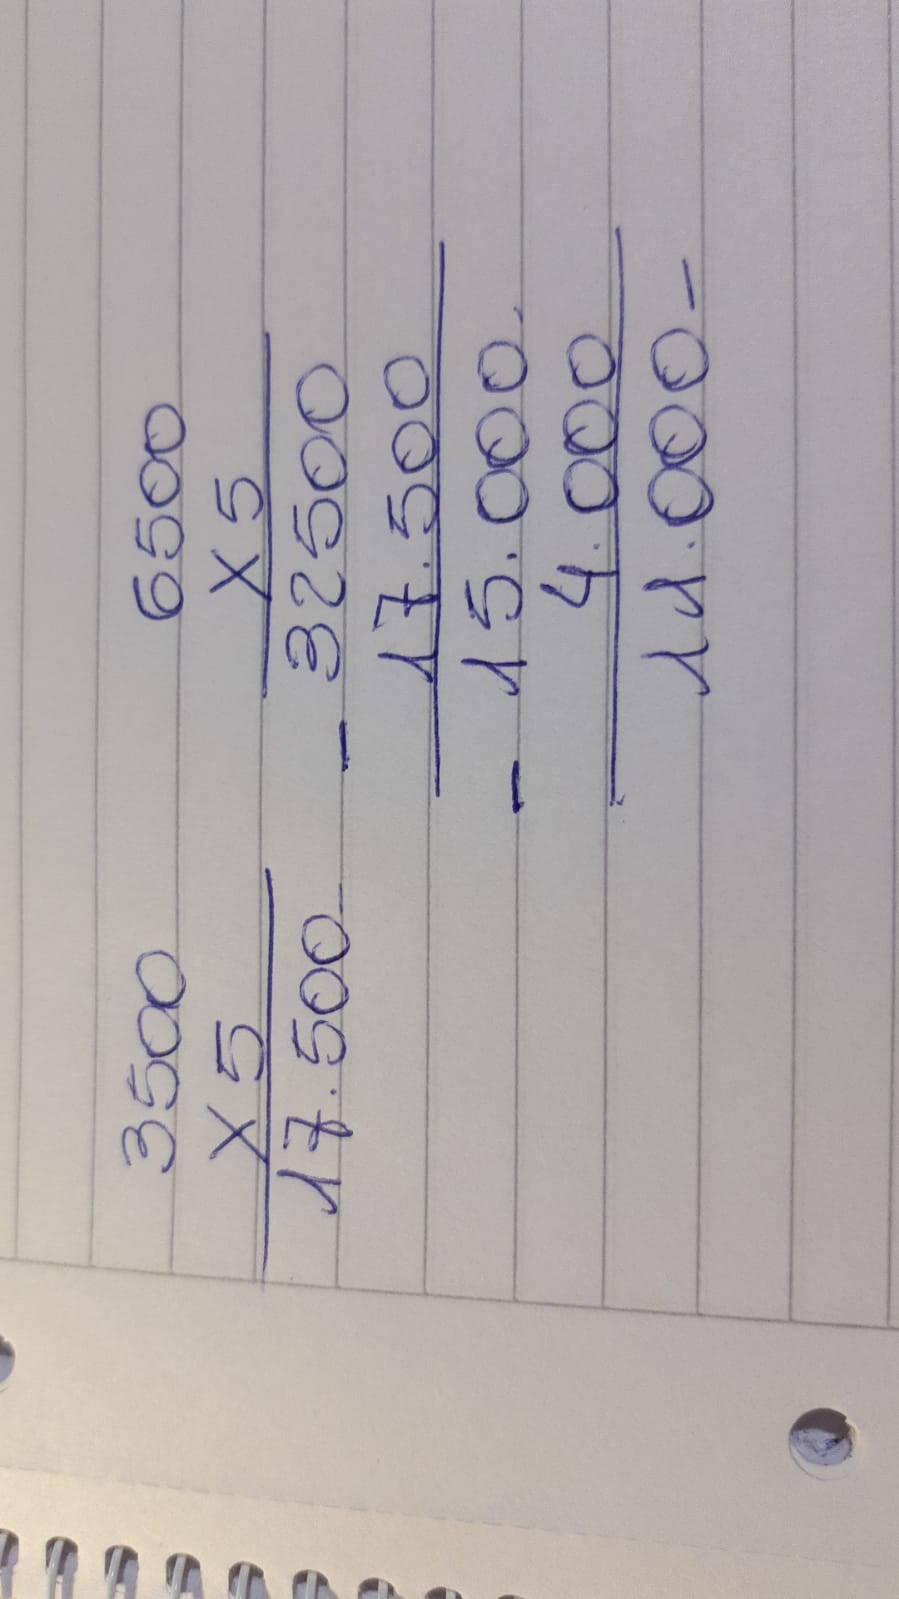 3500 6500
X5 X5
17.500 - 32500
17.500
- 15.000
4.000
11.000-